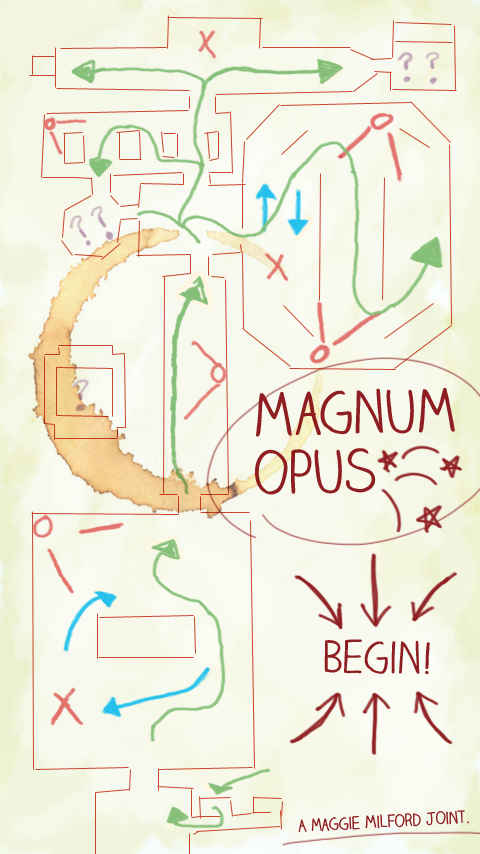 X
? ?
? ?
X
?
MAGNUM
OPUS
X
BEGIN!
A MAGGIE MILFORD JOINT.